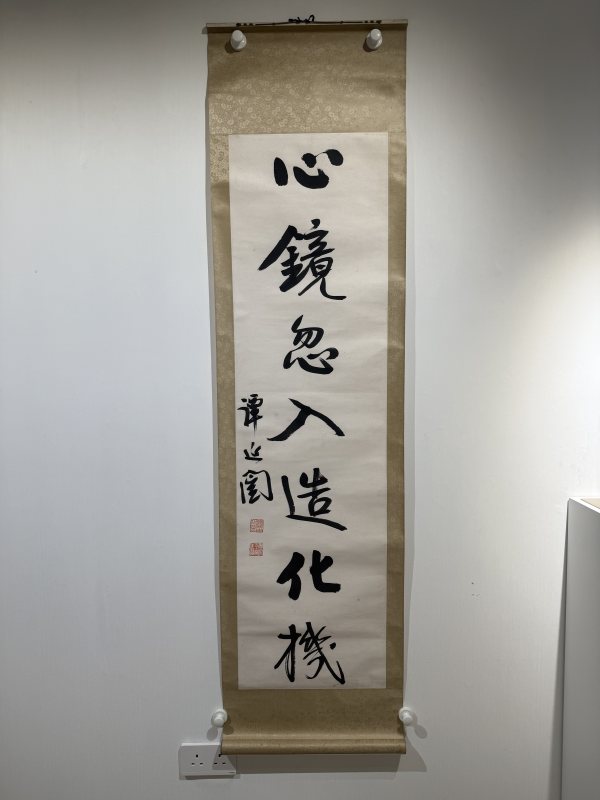 心鏡忽入造化機
譚延闓